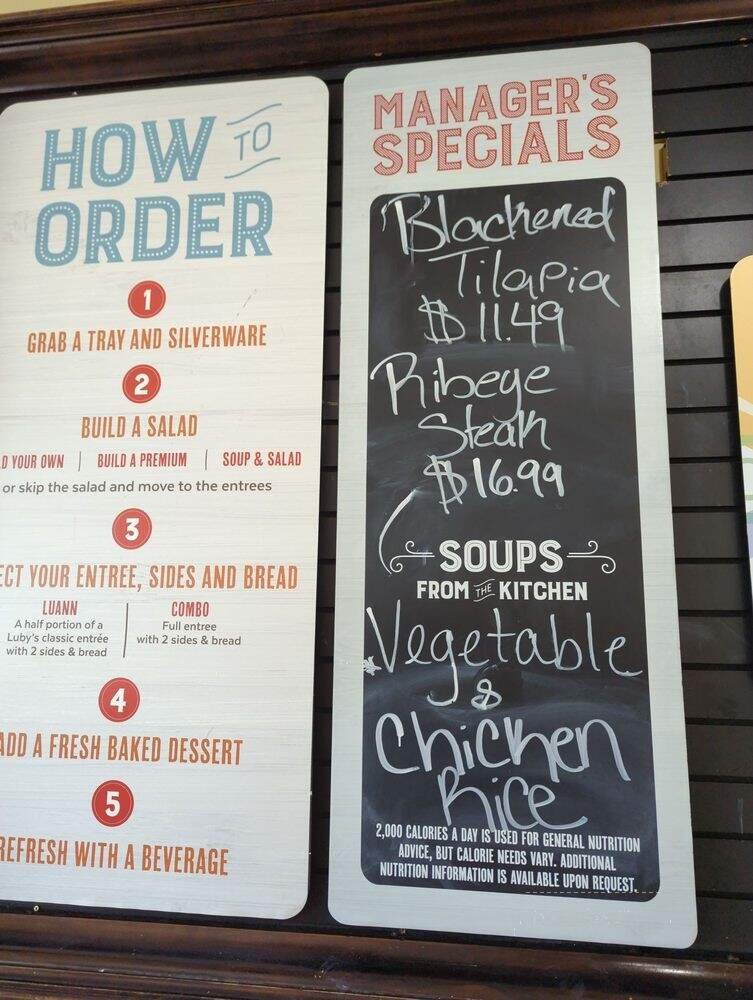 HOW TO
ORDER
1
GRAB A TRAY AND SILVERWARE
2
BUILD A SALAD
D YOUR OWN | BUILD A PREMIUM | SOUP & SALAD
or skip the salad and move to the entrees
3
ECT YOUR ENTREE, SIDES AND BREAD
LUANN
A half portion of a
Luby's classic entrée
with 2 sides & bread
COMBO
Full entree
with 2 sides & bread
4
ADD A FRESH BAKED DESSERT
5
REFRESH WITH A BEVERAGE
MANAGER'S
SPECIALS
Blackened
Tilapia
$11.49
Ribeye
Steak
$16.99
SOUPS
FROM THE KITCHEN
Vegetable
&
Chicken
Rice
2,000 CALORIES A DAY IS USED FOR GENERAL NUTRITION
ADVICE, BUT CALORIE NEEDS VARY. ADDITIONAL
NUTRITION INFORMATION IS AVAILABLE UPON REQUEST.